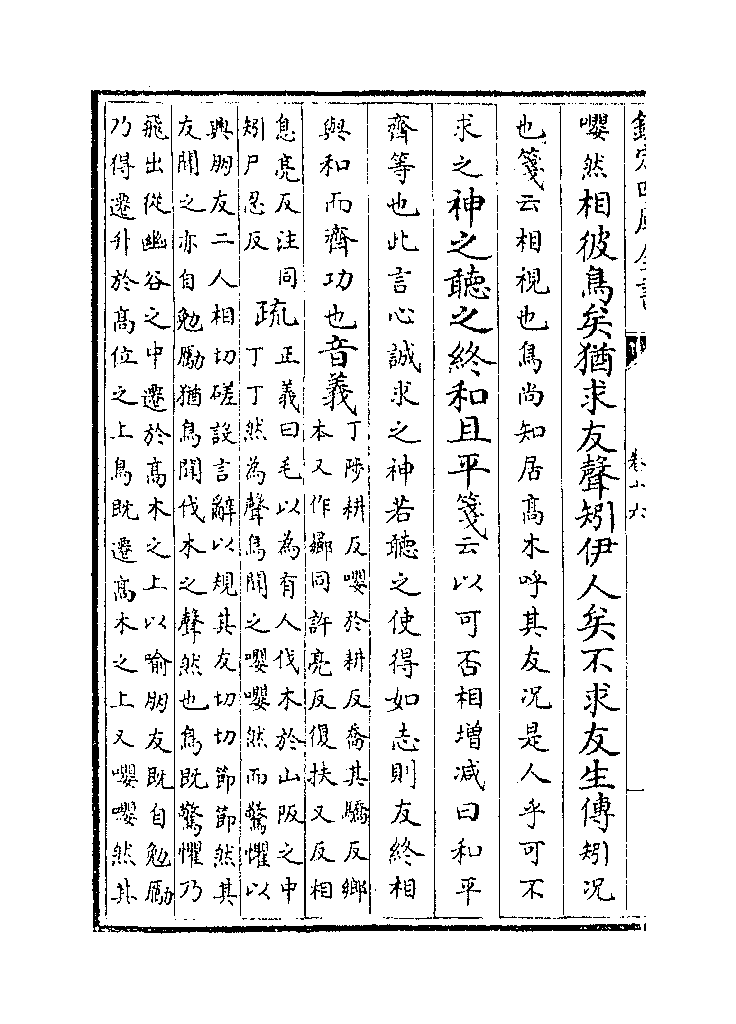 欽定四庫全書
卷十六
嚶然相彼鳥矣猶求友聲矧伊人矣不求友生傳矧况
也箋云相視也鳥尚知居髙木呼其友况是人乎可不
求之神之聽之終和且平箋云以可否相増減曰和平
齊等也此言心誠求之神若聽之使得如志則友終相
與和而齊功也音義
丁陟耕反嚶於耕反喬其驕反鄉
本又作嚮同許亮反復扶又反相
息亮反注同
矧尸忍反
疏
正義曰毛以為有人伐木於山阪之中
丁丁然為聲鳥聞之嚶嚶然而驚懼以
興朋友二人相切磋設言辭以規其友切切節節然其
友聞之亦自勉勵猶鳥聞伐木之聲然也鳥既驚懼乃
飛出從幽谷之中遷於髙木之上以喻朋友既自勉勵
乃得遷升於髙位之上鳥既遷髙木之上又嚶嚶然其